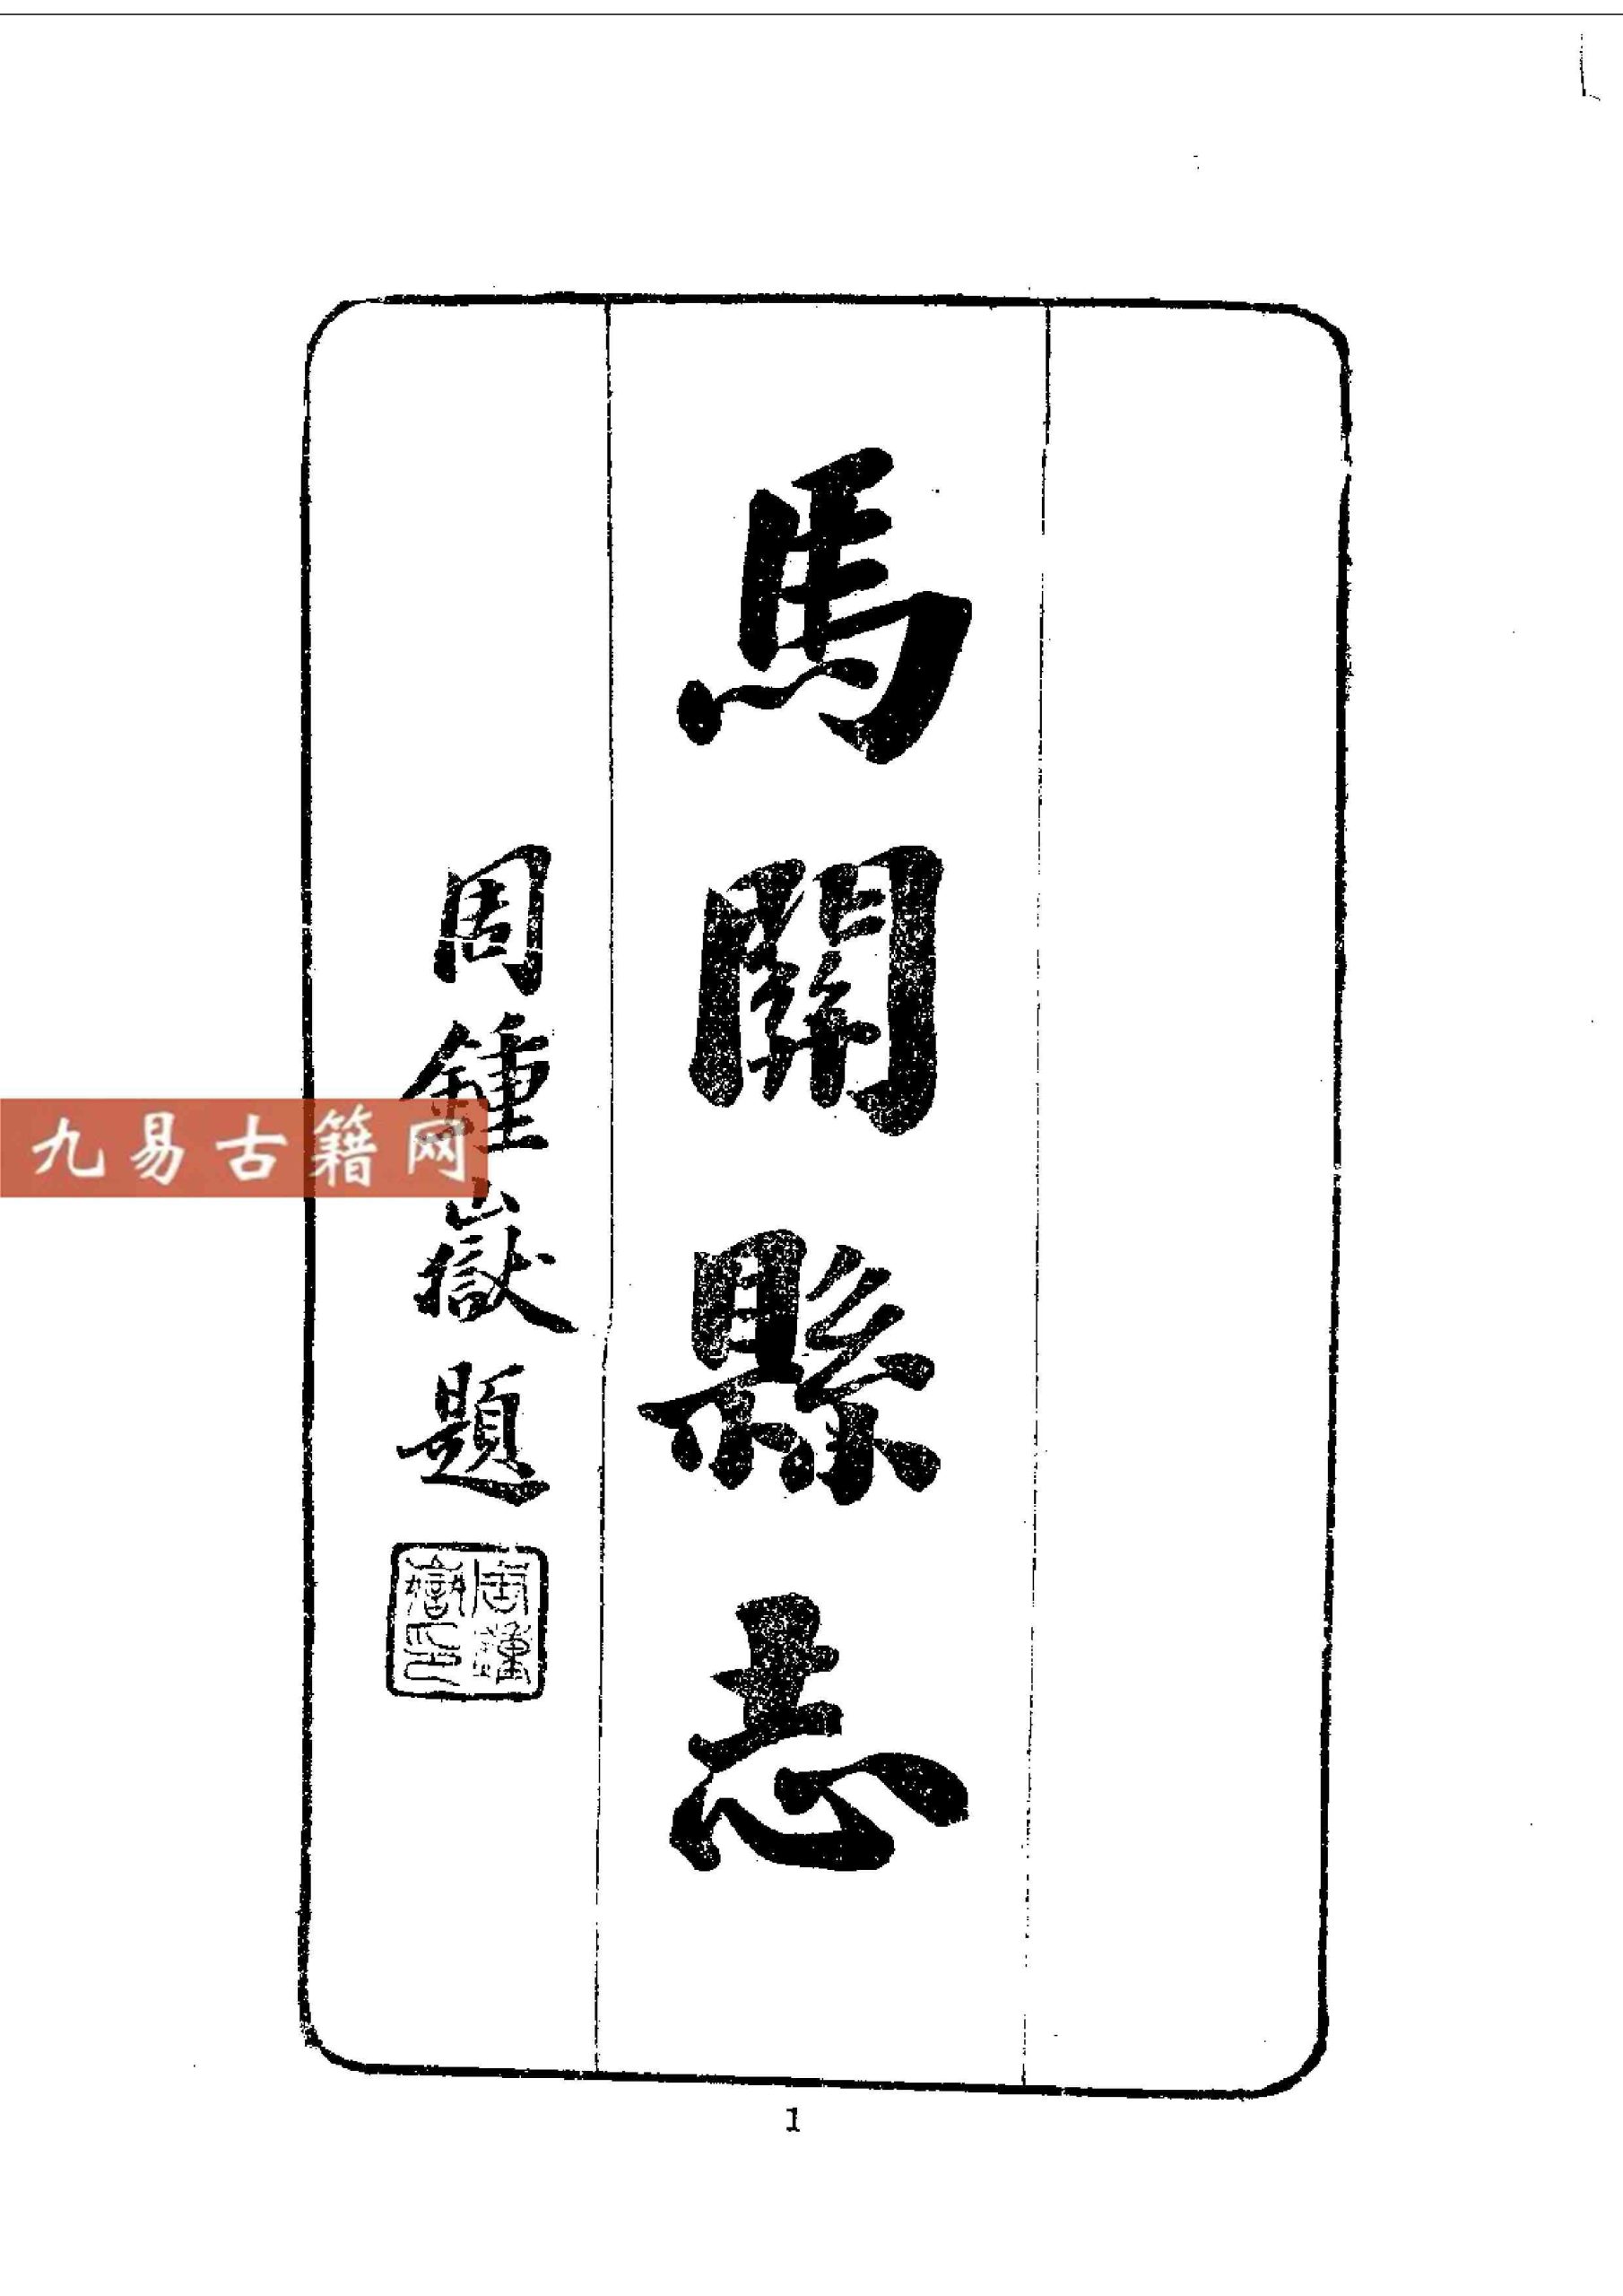 馬關縣志
周鍾嶽題
周鍾嶽印
九易古籍网
1